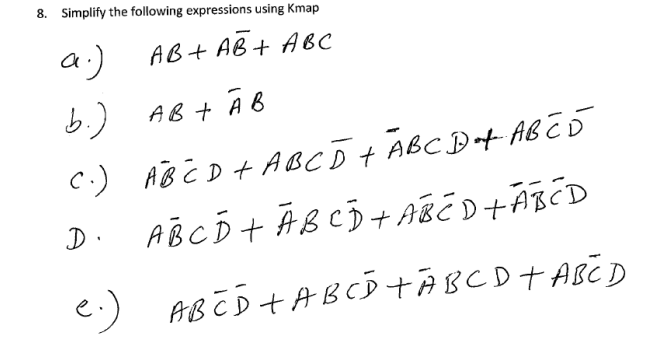 8. Simplify the following expressions using Kmap
a.) AB + AB̅ + ABC
b.) AB + A̅B
c.) AB̅C̅D + ABCD̅ + A̅BCD + ABC̅D̅
D. AB̅CD̅ + A̅BCD̅ + AB̅C̅D + A̅B̅C̅D
e.) ABC̅D̅ + ABCD̅ + A̅BCD + ABC̅D